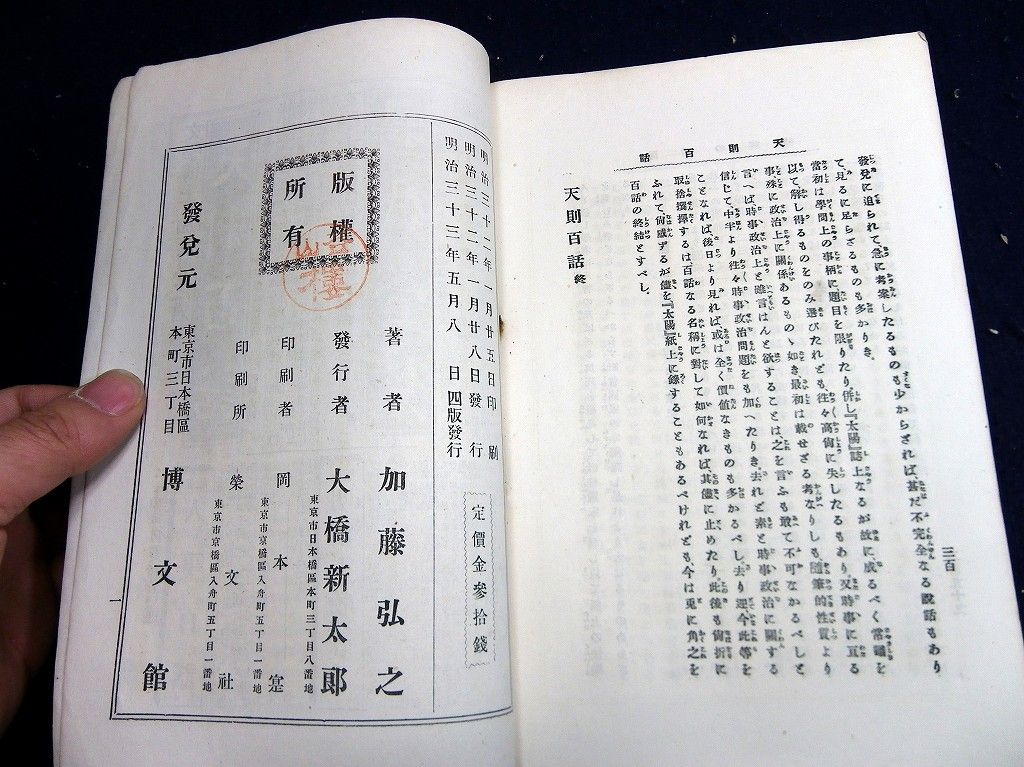 天則百話
三百
發兌に迫られて急に考案したるものも少からざれば、甚だ不完全なる說話もあり
て、見るに足らざるものも多かりき、
當初は學問上の事柄に、題目を限りたり併し『太陽』誌上なるが故に成るべく常識を
以て解し得るものをのみ選びたれども、往々高尙に失したるもあり、又時事に亘る
事殊に政治上に關係あるものゝ如き最初は載せざる考なりしも隨筆的性質より
言へば時事政治上と雖言はんと欲することは、之を言ふも敢て不可なかるべしと
信じて、中半より往々時事政治問題をも加へたりき、去れど素と時事政治に關する
ことなれば後日より見れば或は全く價値なきものも多かるべし、去り迚、今此等を
取捨撰擇するは、百話なる名稱に對して如何なれば、其儘に止めたり、此後も尙折に
ふれて尙感ずるが儘を『太陽』紙上に錄することもあるべけれども今は兎に角之を
百話の終結とすべし、
天則百話 終
明治三十二年一月廿五日印刷
明治三十二年一月廿八日發行
明治三十三年五月八日四版發行
定價金參拾錢
版權
所有
著者 加藤弘之
發行者 大橋新太郎
東京市日本橋區本町三丁目八番地
印刷者 岡本
東京市京橋區入舟町五丁目一番地
印刷所 榮文社
東京市京橋區入舟町五丁目一番地
發兌元
東京市日本橋區
本町三丁目
博文館
一